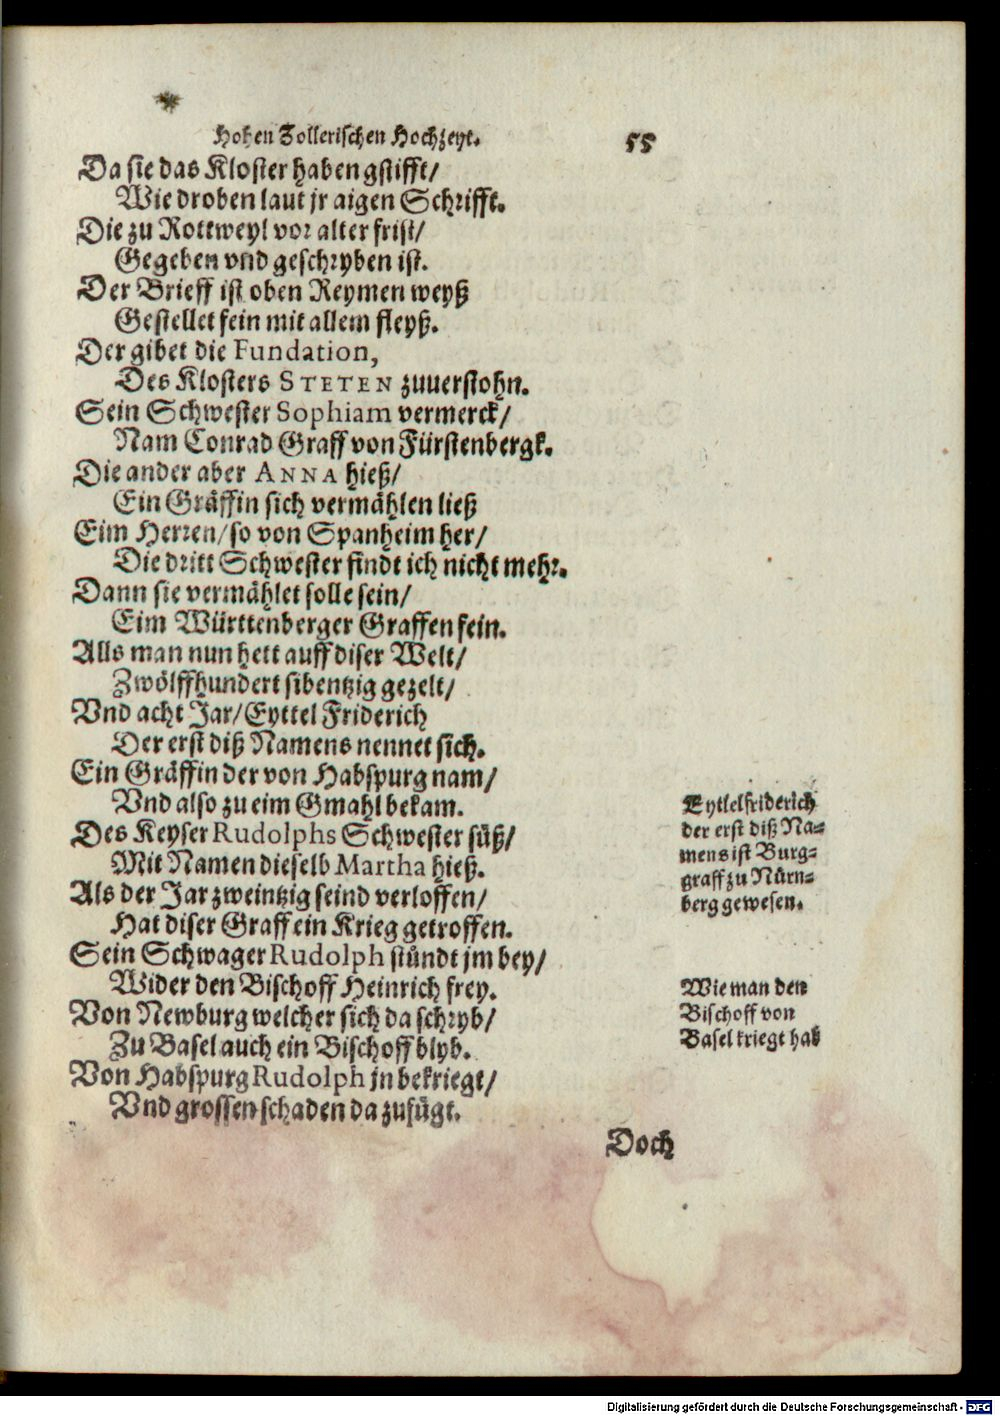 Hohen Zollerischen Hochzeyt. 55
Da sie das Kloster haben gstifft/
Wie droben laut jr aigen Schrifft.
Die zu Rottweyl vor alter frist/
Gegeben vnd geschryben ist.
Der Brieff ist oben Reymen weyß
Gestellet fein mit allem fleyß.
Der gibet die Fundation,
Des Klosters STETEN zuuerstohn.
Sein Schwester Sophiam vermerck/
Nam Conrad Graff von Fürstenbergk.
Die ander aber ANNA hieß/
Ein Gräffin sich vermählen ließ
Eim Herren/so von Spanheim her/
Die dritt Schwester findt ich nicht mehr.
Dann sie vermählet solle sein/
Eim Württenberger Graffen fein.
Alls man nun hett auff diser Welt/
Zwölffhundert sibentzig gezelt/
Vnd acht Jar/Eyttel Friderich
Der erst diß Namens nennet sich.
Ein Gräffin der von Habspurg nam/
Vnd also zu eim Gmahl bekam.
Des Keyser Rudolphs Schwester süß/
Mit Namen dieselb Martha hieß.
Als der Jar zweintzig seind verloffen/
Hat diser Graff ein Krieg getroffen.
Sein Schwager Rudolph stündt jm bey/
Wider den Bischoff Heinrich frey.
Von Newburg welcher sich da schryb/
Zu Basel auch ein Bischoff blyb.
Von Habspurg Rudolph jn bekriegt/
Vnd grossen schaden da zufügt.
Doch
Eytlelfriderich
der erst diß Na-
mens ist Burg-
graff zu Nürn-
berg gewesen.
Wie man den
Bischoff von
Basel kriegt hab
Digitalisierung gefördert durch die Deutsche Forschungsgemeinschaft - DFG